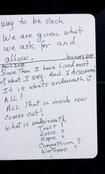 way to be each.
We are given what
we ask for and
allow.
Since Then I have lived most
of what I say. And I discovered
It is whats underneath it
ALL!
ALL That is inside now
comes out!
What is underneath
Trust?
Love?
Hope?
Compassion?
Worthyness?